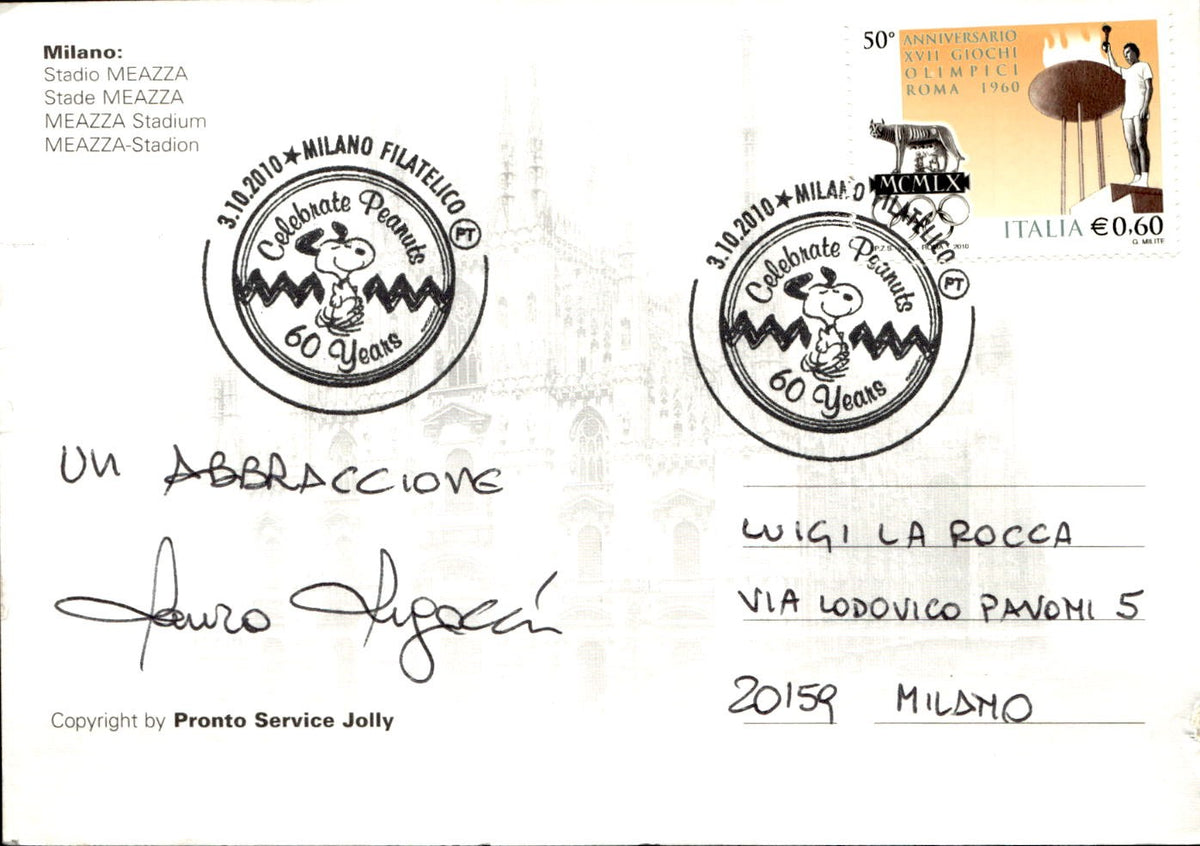 Milano:
Stadio MEAZZA
Stade MEAZZA
MEAZZA Stadium
MEAZZA-Stadion
50° ANNIVERSARIO
XVII GIOCHI
OLIMPICI
ROMA 1960
MCMLX
ITALIA €0,60
G. MILITE
3.10.2010★MILANO FILATELICO PT
Celebrate Peanuts
60 Years
3.10.2010★MILANO FILATELICO PT
Celebrate Peanuts
60 Years
UN ABBRACCIONE
LUIGI LA ROCCA
VIA LODOVICO PAVONI 5
20159 MILANO
Copyright by Pronto Service Jolly